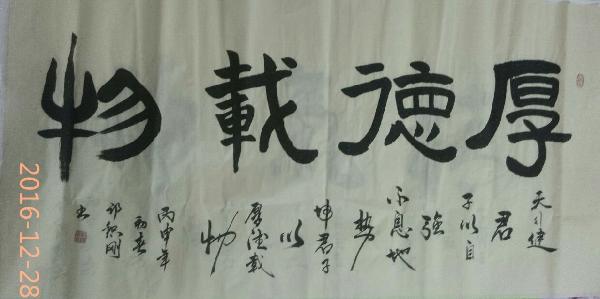 厚德載物
天行健
君
子以自
強
不息地
势
坤君子
以
厚德載
物
丙申年
初春
书
2016-12-28